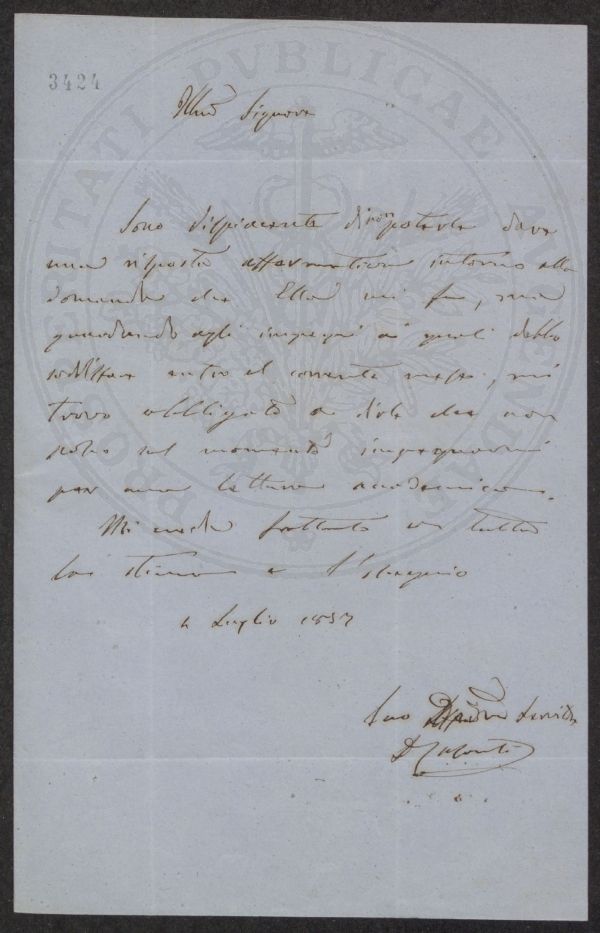 3424
Illmo Signore
Sono dispiacente di non poterle dare
una risposta affermativa intorno alla
domanda che Ella mi fa, ma
guardando agli impegni ai quali debbo
soddisfare entro il corrente mese, mi
trovo obbligato a dirle che non
posso sul momento impegnarmi
per una lettura accademica.
Mi creda frattanto con tutta
la stima e l'ossequio
4 Luglio 1857
Suo
PROSPERITATI PUBLICAE AUGENDAE